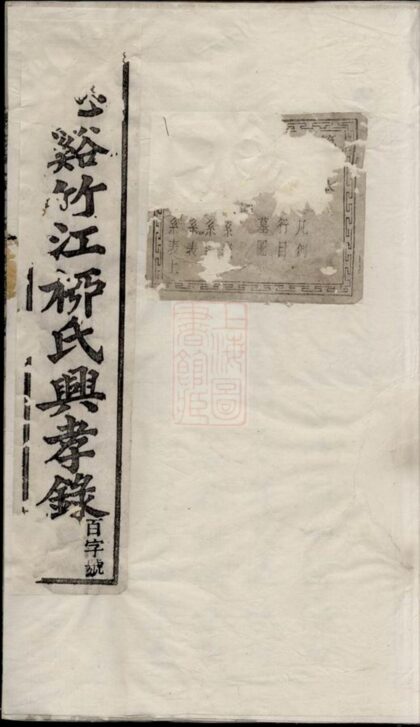 谿竹江栁氏興孝錄
百字號
凡例
科目
墓圖
系
系
系表
系表上
上海圖
書館藏